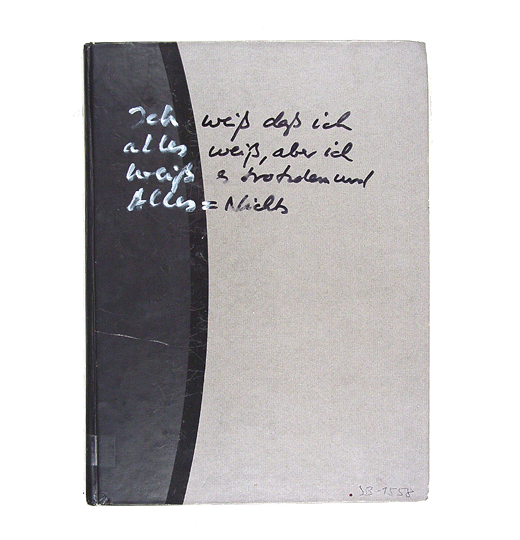 Ich weiß daß ich
alles weiß, aber ich
weiß es trotzdem und
Alles = Nichts
SB-1558